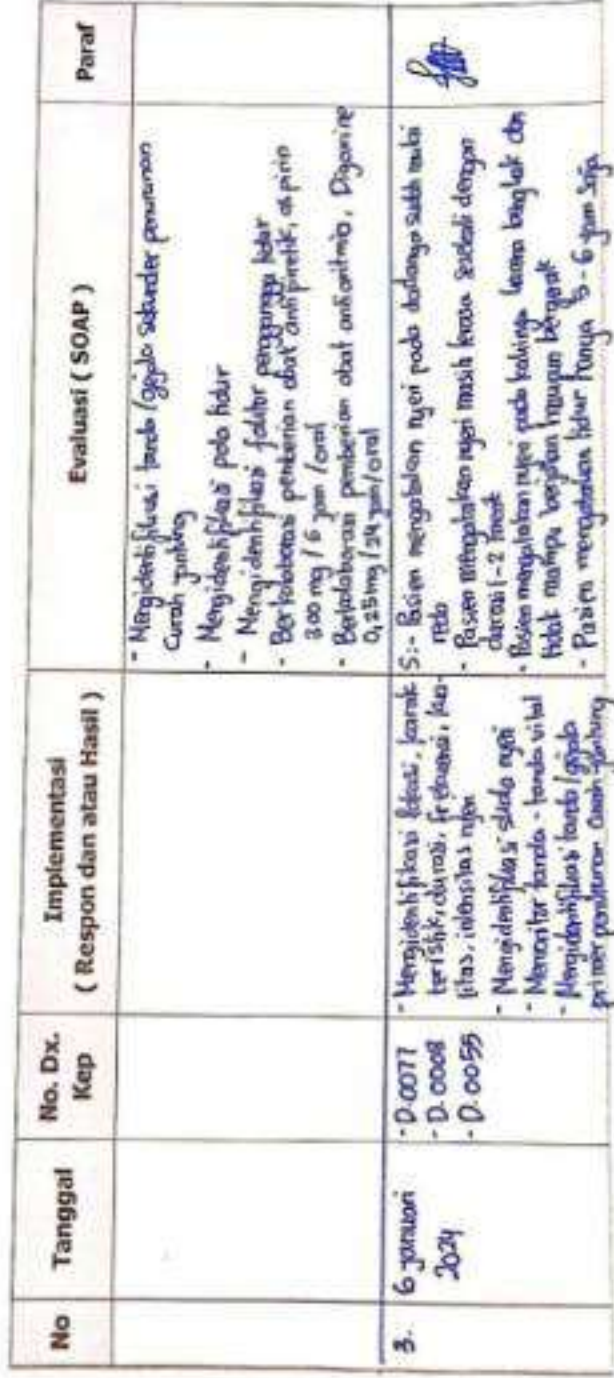 No
Tanggal
No. Dx.
Kep
Implementasi
( Respon dan atau Hasil )
Evaluasi ( SOAP )
Paraf
- Mengidentifikasi tanda/gejala sekunder penurunan
curah jantung
- Mengidentifikasi pola tidur
- Mengidentifikasi faktor pengganggu tidur
- Berkolaborasi pemberian obat antipiretik, aspirin
300 mg / 6 jam / oral
- Berkolaborasi pemberian obat antiaritmia, Digoxine
0,25mg / 24 jam / oral
3.
6 januari
2024
- D.0077
- D.0008
- D.0055
- Mengidentifikasi lokasi, karak
teristik, durasi, frekuensi, kua-
litas, intensitas nyeri
- Mengidentifikasi skala nyeri
- Memonitor tanda-tanda vital
- Mengidentifikasi tanda/gejala
primer penurunan curah jantung
S:- Pasien mengatakan nyeri pada dadanya sudah mulai
reda
- Pasien mengatakan nyeri masih terasa sesekali dengan
durasi 1-2 menit
- Pasien mengatakan nyeri pada kakinya karena bengkak dan
tidak mampu berjalan maupun bergerak
- Pasien mengatakan tidur hanya 5-6 jam saja